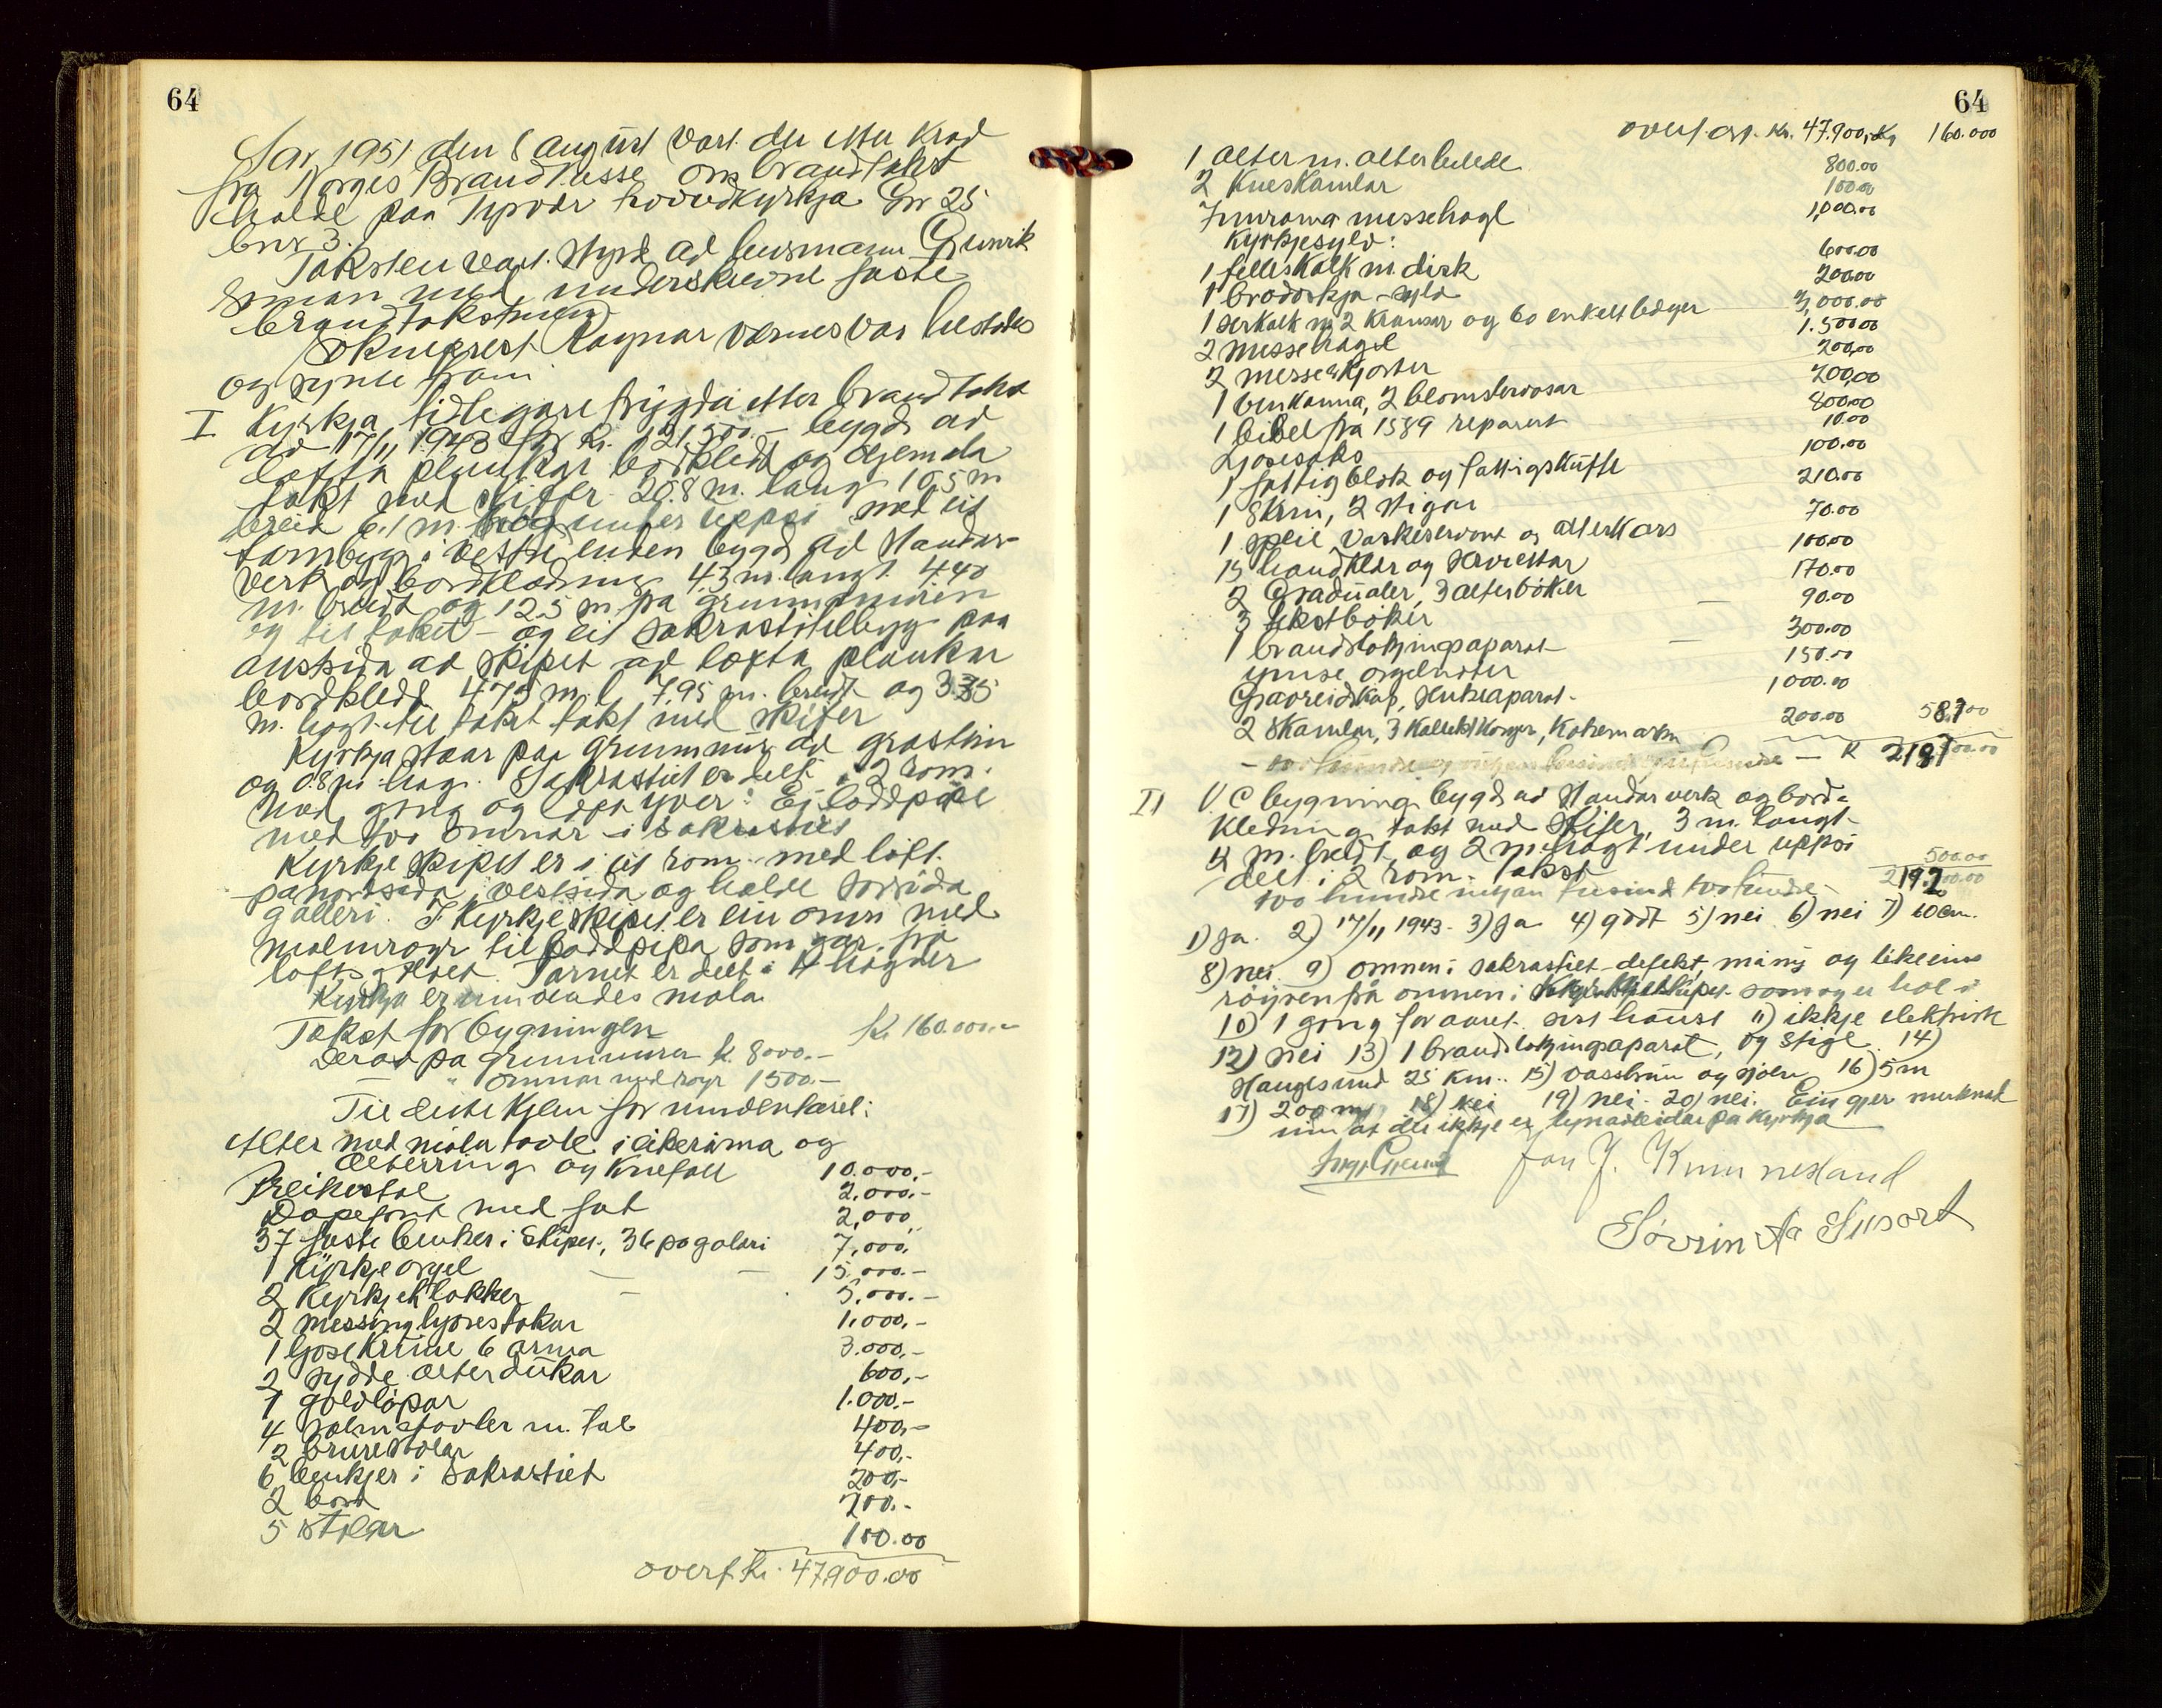 64
Aar 1951 den 8 august vart der etter krav
fra Norges Brandkasse om brandtakst
halde paa Tysvær hovudkyrkja Gnr 25
bnr 3.
Taksten vart styrd ad lensmann
med underskrivne faste
brandtakstmenn
Sokneprest Ragnar Vernes var tilstades
og synte fram
I Kyrkja tidlegare trygda etter brandtakst
ad 17/11 1943 for kr. 121.500.- bygd ad
lofta plankar bordkledt og
takt med skiffer 20.8 m. lang 10,5 m
breid 6.1 m. høg under uppsi med eit
tornbygg i vestre enden bygd ad standar-
verk og bordklædning 4,3 m. langt 4.40
m. breidt og 12.5 m. fra grunnmuren
og til taket - og eit sakrastitilbygg paa
austsida ad skipet ad lofta plankar
bordkledt 4.75 m. l. 7.95 m. breidt og 3.35
m. høgt til taket takt med skifer
Kyrkja staar paa grunnmur ad grastein
og 0.8 m. høg. Sakrastiet er delt i 2 rom.
med gong og loft yver: Ei loddpipe
med too omnar i sakrastiet
Kyrkjeskipet er i eit rom med loft.
pa nordsida, vestsida og halde sørsida
galleri. I Kyrkjeskipet er ein omn med
malmrøyr til loddpipa som gar fra
loftsgolvet. Tarnet er delt i 4 høgder
Kyrkja er innvendes mala
Takst for bygningen kr. 160.000.-
Derav pa grunnmuren k. 8000.-
" omnar med røyr 1500.-
Til
Alter med mala tavle i eikerama og
alterring og knefall 10.000.-
Preikestol 2.000.-
Døpefont med fat 2.000
37 faste benker i skipet, 36 pa galleri 7.000.
1 Kyrkjeorgel 15.000.-
2 Kyrkjeklokker 5.000.-
2 messinglysestakar 1.000.-
1 ljosekrune 6 arma 3.000.-
2 sydde alterdukar 600.-
1 golvløpar 1.000.-
4 salmetavler m. tal 400.-
2 brurestolar 400.-
6 benkjer i sakrastiet 200.-
2 bord 200.-
5 stolar 100.00
overf. kr. 47.900.00
64
overf. kr. 47.900,- Kr 160.000
1 alter m. alterbilede 800.00
2 Kneskamlar 100.00
messehagl 1,000.00
Kyrkjesylv:
1 felleskalk m. disk 600.00
1 brødøskja - sylv 200.00
1 serkalk m. 2 Kranser og 60 enkeltbeger 3,000.00
2 messehagel 1.500.00
2 messeskjorter 200,00
1 vinkanna, 2 blomstervasar 200,00
1 bibel fra 1589 reparert 800.00
Ljosesaks 10.00
1 fattigblok og fattigskuffe 100.00
1 skrin, 2 stigar 210.00
1 speil, vaskeservant og alterkors 70.00
15 handklær og servietter 100.00
2 Gradualer, 3 alterbøker 170.00
3 tekstbøker 90.00
1 brandsløkjingsaparat 300.00
ymse orgelnoter 150.00
Gravreidskap, 1000.00
2 skamlar, 3 200.00 58.700
k 218.700.00
II V.C bygning bygd ad standarverk og bord-
kledning takt med skifer, 3 m. langt
4 m. breidt og 2 m. høgt under uppsi
delt i 2 rom. takst 500.00
too hundre nitjan tusind tvohundre 219.200.00
1) Ja. 2) 17/11 1943. 3) Ja 4) godt 5) nei 6) nei 7) 60 cm.
8) nei 9) omnen i sakrastiet defekt, ma ny og likeeins
røyren fra omnen i som og er hol i
10) 1 gong for aaret. sist haust 11) ikkje elektrisk
12) nei 13) 1 brandsløkjingsaparat, og stige 14)
Haugesund 25 km. 15) vassbrun og sjøen 16) 5 m
17) 200 m 18) nei 19) nei. 20) nei. Ein gjer merksad
um at der ikkje er lynavleidar pa kyrkja
Jan J. Kvinnesland
Sövrin Aa Susort